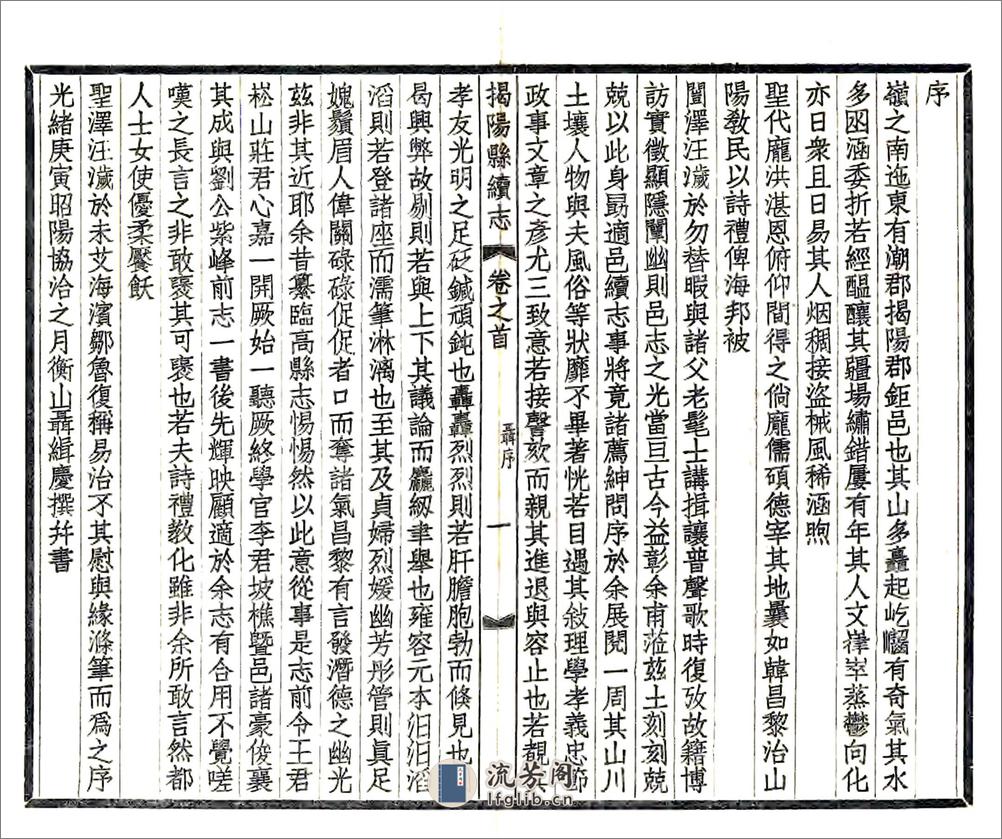 序
嶺之南迤東有潮郡揭陽郡鉅邑也其山多矗起屹𡾰有奇氣其水
多函涵委折若經醞釀其疆場繡錯屢有年其人文嵂崒蒸鬱向化
亦日衆且日易其人烟稠接盜械風稀涵煦
聖代龐洪湛恩俯仰間得之倘龐儒碩德宰其地曩如韓昌黎治山
陽敎民以詩禮俾海邦被
闓澤汪濊於勿替暇與諸父老髦士講揖讓普聲歌時復攷故籍博
訪實徵顯隱闡幽則邑志之光當亘古今益彰余甫蒞茲土刻刻兢
兢以此身勗適邑續志事將竟諸薦紳問序於余展閱一周其山川
土壤人物與夫風俗等狀靡不畢著恍若目遇其敘理學孝義忠節
政事文章之彥尤三致意若接謦欬而親其進退與容止也若覩其
揭陽縣續志 卷之首 聶序 一
孝友光明之足砭鍼頑鈍也轟轟烈烈則若肝膽胞勃而倏見也其
曷興弊故剔則若與上下其議論而麤紉聿舉也雍容元本汨汨滔
滔則若登諸座而濡筆淋漓也至其及貞婦烈媛幽芳彤管則眞足
媿鬚眉人偉關碌碌促促者口而奪諸氣昌黎有言發潛德之幽光
茲非其近耶余昔纂臨高縣志惕惕然以此意從事是志前令王君
崧山莊君心嘉一開厥始一聽厥終學官李君坡樵曁邑諸豪俊襄
其成與劉公紫峰前志一書後先輝映顧適於余志有合用不覺嗟
嘆之長言之非敢褒其可褒也若夫詩禮敎化雖非余所敢言然都
人士女使優柔饜飫
聖澤汪濊於未艾海濱鄒魯復稱易治不其慰與緣滌筆而爲之序
光緖庚寅昭陽協洽之月衡山聶緝慶撰幷書
流芳阁
lfglib.cn